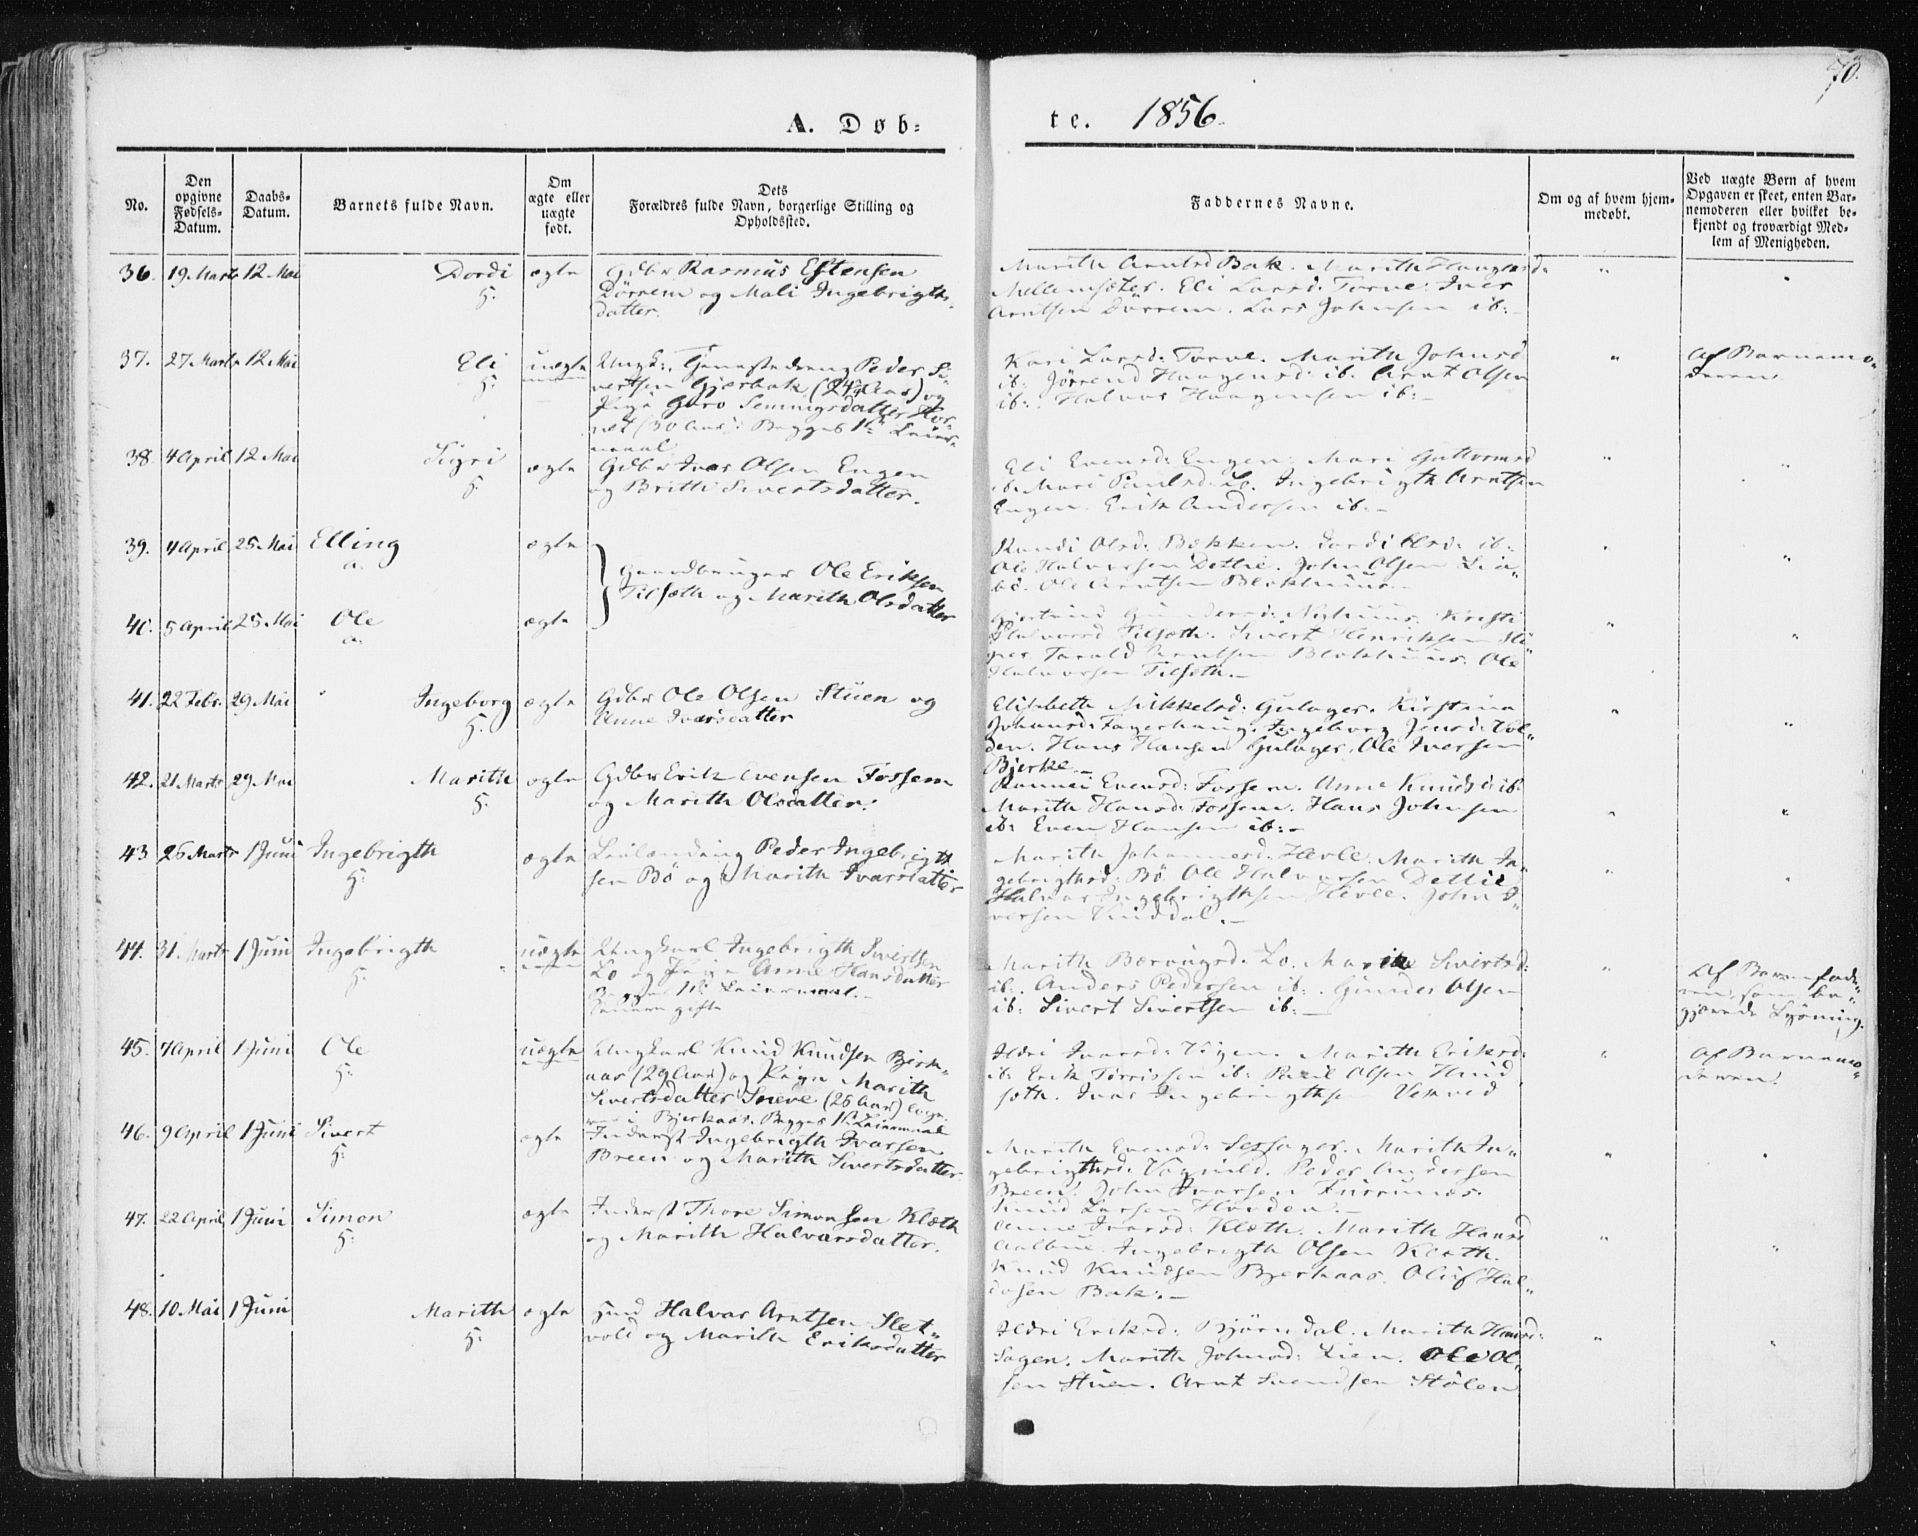 70.
A. Døb-
te. 1856.
No.
Den opgivne Fødsels-Datum.
Daabs-Datum.
Barnets fulde Navn.
Om ægte eller uægte født.
Dets Forældres fulde Navn, borgerlige Stilling og Opholdssted.
Faddernes Navne.
Om og af hvem hjem-medøbt.
Ved uægte Børn af hvem Opgaven er skeet, enten Bar-nemoderen eller hvilket be-kjendt og troværdigt Med-lem af Menigheden.
36. 19. Marts 12 Mai Dordi ægte Gdbr Rasmus Estensen
H. Dörrem og Mali Ingebrigts-
datter.
Marith Arntsd Bak. Marith Haagensd:
Mellemsæter. Eli Larsd: Torve. Iver
Arntsen Dörrem. Lars Johnsen ib:
37. 27 Marts 12 Mai Eli uægte Ungk: Tjenestedreng Peder Si-
H. vertsen Gjerbak (24 Aar) og
Pige Guro Semmigsdatter Hor-
net (30 Aar). Begges 1ste Leier-
maal
Kari Larsd: Torve. Marith Johnsd
ib: Jörrend Haagensd: ib. Arnt Olsen
ib: Halvor Haagensen ib:
Af Barnemo-
deren.
38. 4 April 12 Mai Sigri ægte Gdbr Ivar Olsen Engen
H. og Britti Sivertsdatter.
Eli Evensd: Engen. Mari Guttormsd
ib. Mari Paulsd: ib. Ingebrigth Arntsen
Engen. Erik Andersen ib.
39. 4 April 25 Mai Elling ægte
a. Gaardbruger Ole Eriksen
Tilseth og Marith Olsdatter
Randi Olsd: Bakken. Dordi Olsd: ib:
Ole Halvorsen Detlie. John Olsen Lia-
bö. Ole Arntsen Blokhuus.
40. 5 April 25 Mai Ole ægte
a.
Gjertrud Gundersd: Nyhuus. Kristi
Halvorsd Tilseth. Sivert Henriksen
Tarald Arntsen Blokhuus. Ole
Halvorsen Tilseth.
41. 22 Febr. 29 Mai Ingeborg ægte Gdbr Ole Olsen Stuen og
H. Anne Ivarsdatter
Elisabeth Mikkelsd: Gulager. Kirstine
Johansd: Fagerhaug. Ingeborg Jensd: Vol-
den. Hans Hansen Gulager. Ole Iversen
Bjerke.
42. 21 Marts 29 Mai Marith ægte Gdbr Erik Evensen Fossem
H. og Marith Olsdatter.
Rannei Evensd: Fossem. Anne Knudsd: ib:
Marith Hansd: Fossem. Hans Johnsen
ib: Even Hansen ib:
43. 26 Marts 1 Juni Ingebrigth ægte Leilænding Peder Ingebrigt
H. sen Bö og Marith Ivarsdatter
Marith Johannesd: Hevle. Marith In-
gebrigthsd: Bö. Ole Halvorsen Detlie
Halvor Ingebrigthsen Hevle. John I-
versen Vinddal.
44. 31 Marts 1 Juni Ingebrigth uægte Ungkarl Ingebrigth Sivertsen
H. Lo og Pige Anne Hansdatter
Begges 1ste Leiermaal.
Senere gifte
Marith Bæraugsd. Lo. Marith Sivertsd:
ib. Anders Pedersen ib: Gunder Olsen
ib: Sivert Sivertsen ib:
Af Barnefade-
ren, som be-
gjærede Lysning.
45. 7 April 1 Juni Ole uægte Ungkarl Knud Knudsen Bjerk-
H. aas (29 Aar) og Pigen Marith
Sivertsdatter Sneve (26 Aar)
i Bjerkaas. Begges 1ste Leiermaal
Ildri Ivarsd: Vigen. Marith Eriksd:
ib: Erik Törrissen ib: Paul Olsen Hind
seth. Ivar Ingebrigthsen
Af Barnemo-
deren.
46. 9 April 1 Juni Sivert ægte Inderst Ingebrigth Ivarsen
H. Breen og Marith Sivertsdatter
Marith Evensd: Sessager. Marith In-
gebrigthsd: Vognild. Peder Andersen
Breen. John Ivarsen Furrunæs.
Knud Larsen Hovden.
47. 22 April 1 Juni Simon ægte Inderst Thore Simonsen Klæth
H. og Marith Halvarsdatter.
Anne Ivarsd: Klæth. Marith Hansd
Aalbue. Ingebrigth Olsen Klæth.
Knud Knudsen Bjerkaas. Oluf Hal-
dosen Bak.
48. 10 Mai 1 Juni Marith ægte Hmd Halvar Arntsen Slet-
H. vold og Marith Eriksdatter
Ildri Eriksd: Björndal. Marith Hansd:
Sagen. Marith Johnsd: Lien. Ole Ol-
sen Stuen. Arnt Svendsen Stölen